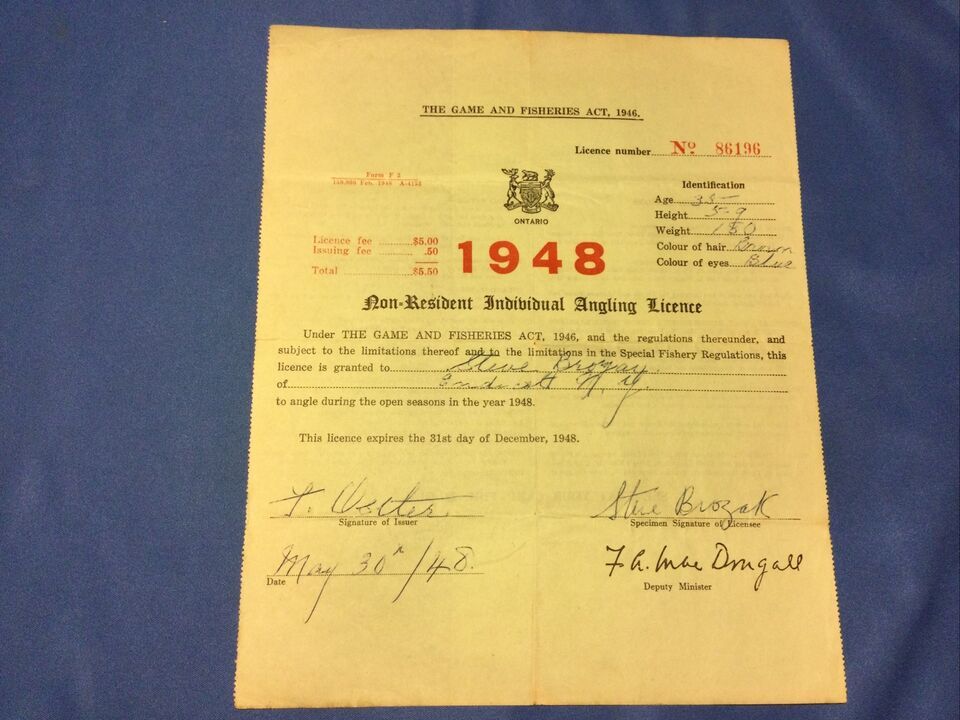 THE GAME AND FISHERIES ACT, 1946.
Licence number No 86196
Form F 2
150,000 Feb. 1948 A-4153
ONTARIO
Identification
Age 35
Height 5-9
Weight 150
Colour of hair Brown
Colour of eyes Blue
Licence fee $5.00
Issuing fee .50
Total $5.50
1948
Non-Resident Individual Angling Licence
Under THE GAME AND FISHERIES ACT, 1946, and the regulations thereunder, and
subject to the limitations thereof and to the limitations in the Special Fishery Regulations, this
licence is granted to Steve
of Endicott N.Y.
to angle during the open seasons in the year 1948.
This licence expires the 31st day of December, 1948.
Signature of Issuer
Steve Brozak
Specimen Signature of Licensee
May 30th/48.
Date
F. A. MacDougall
Deputy Minister